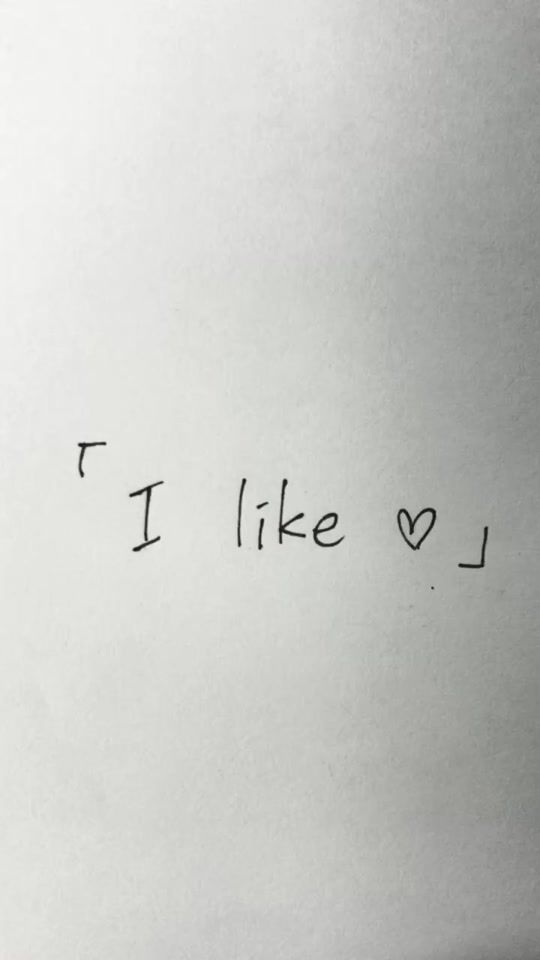 「I like ♡」